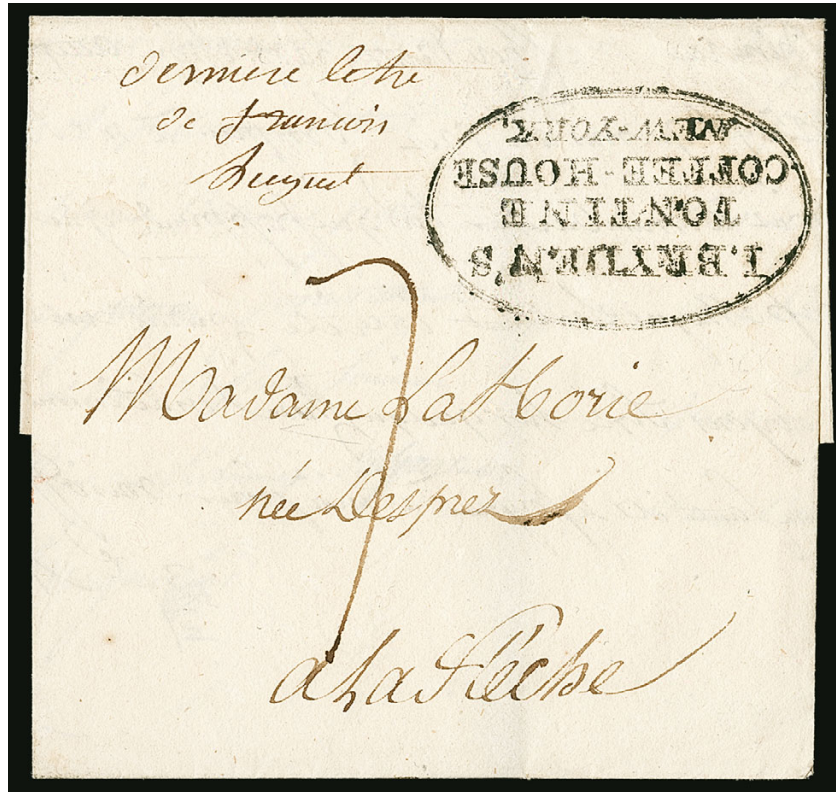 derniere lettre
de francois
I. BRYDEN'S
TONTINE
COFFEE-HOUSE
NEW-YORK.
7
Madame La Horie
née Desprez
a La Fléche